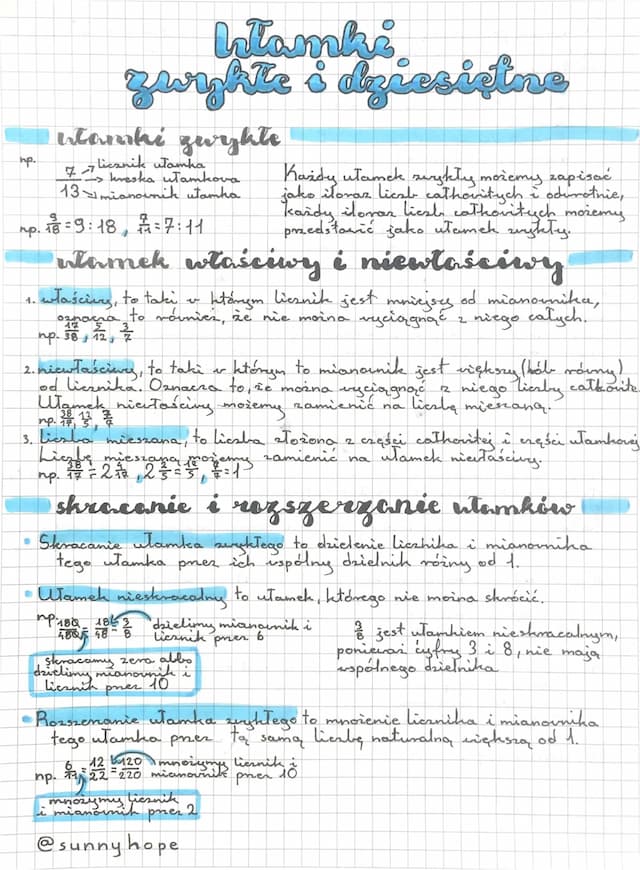 Ułamki
zwykłe i dziesiętne
ułamki zwykłe
np.
7 → licznik ułamka
→ kreska ułamkowa
13 → mianownik ułamka
np. 9/18 = 9:18, 7/11 = 7:11
Każdy ułamek zwykły możemy zapisać
jako iloraz liczb całkowitych i odwrotnie,
każdy iloraz liczb całkowitych możemy
przedstawić jako ułamek zwykły.
ułamek właściwy i niewłaściwy
1. właściwy, to taki w którym licznik jest mniejszy od mianownika,
oznacza to również, że nie można wyciągnąć z niego całych.
np. 17/38, 5/12, 3/7
2. niewłaściwy, to taki w którym to mianownik jest większy (lub równy)
od licznika. Oznacza to, że można wyciągnąć z niego liczby całkowite.
Ułamek niewłaściwy możemy zamienić na liczbę mieszaną.
np. 38/17, 12/5, 7/7
3. Liczba mieszana, to liczba złożona z części całkowitej i części ułamkowej
Liczbę mieszaną możemy zamienić na ułamek niewłaściwy.
np. 38/17 = 2 4/17, 2 2/5 = 12/5, 7/7 = 1
skracanie i rozszerzanie ułamków
• Skracanie ułamka zwykłego to dzielenie licznika i mianownika
tego ułamka przez ich wspólny dzielnik różny od 1.
• Ułamek nieskracalny to ułamek, którego nie można skrócić.
np. 180/480 = 18/48 = 3/8 dzielimy mianownik i
licznik przez 6
skracamy zera albo
dzielimy mianownik i
licznik przez 10
3/8 jest ułamkiem nieskracalnym,
ponieważ cyfry 3 i 8, nie mają
wspólnego dzielnika
• Rozszerzanie ułamka zwykłego to mnożenie licznika i mianownika
tego ułamka przez tą samą liczbę naturalną większą od 1.
np. 6/11 = 12/22 = 120/220 mnożymy licznik i
mianownik przez 10
mnożymy licznik
i mianownik przez 2
@sunnyhope